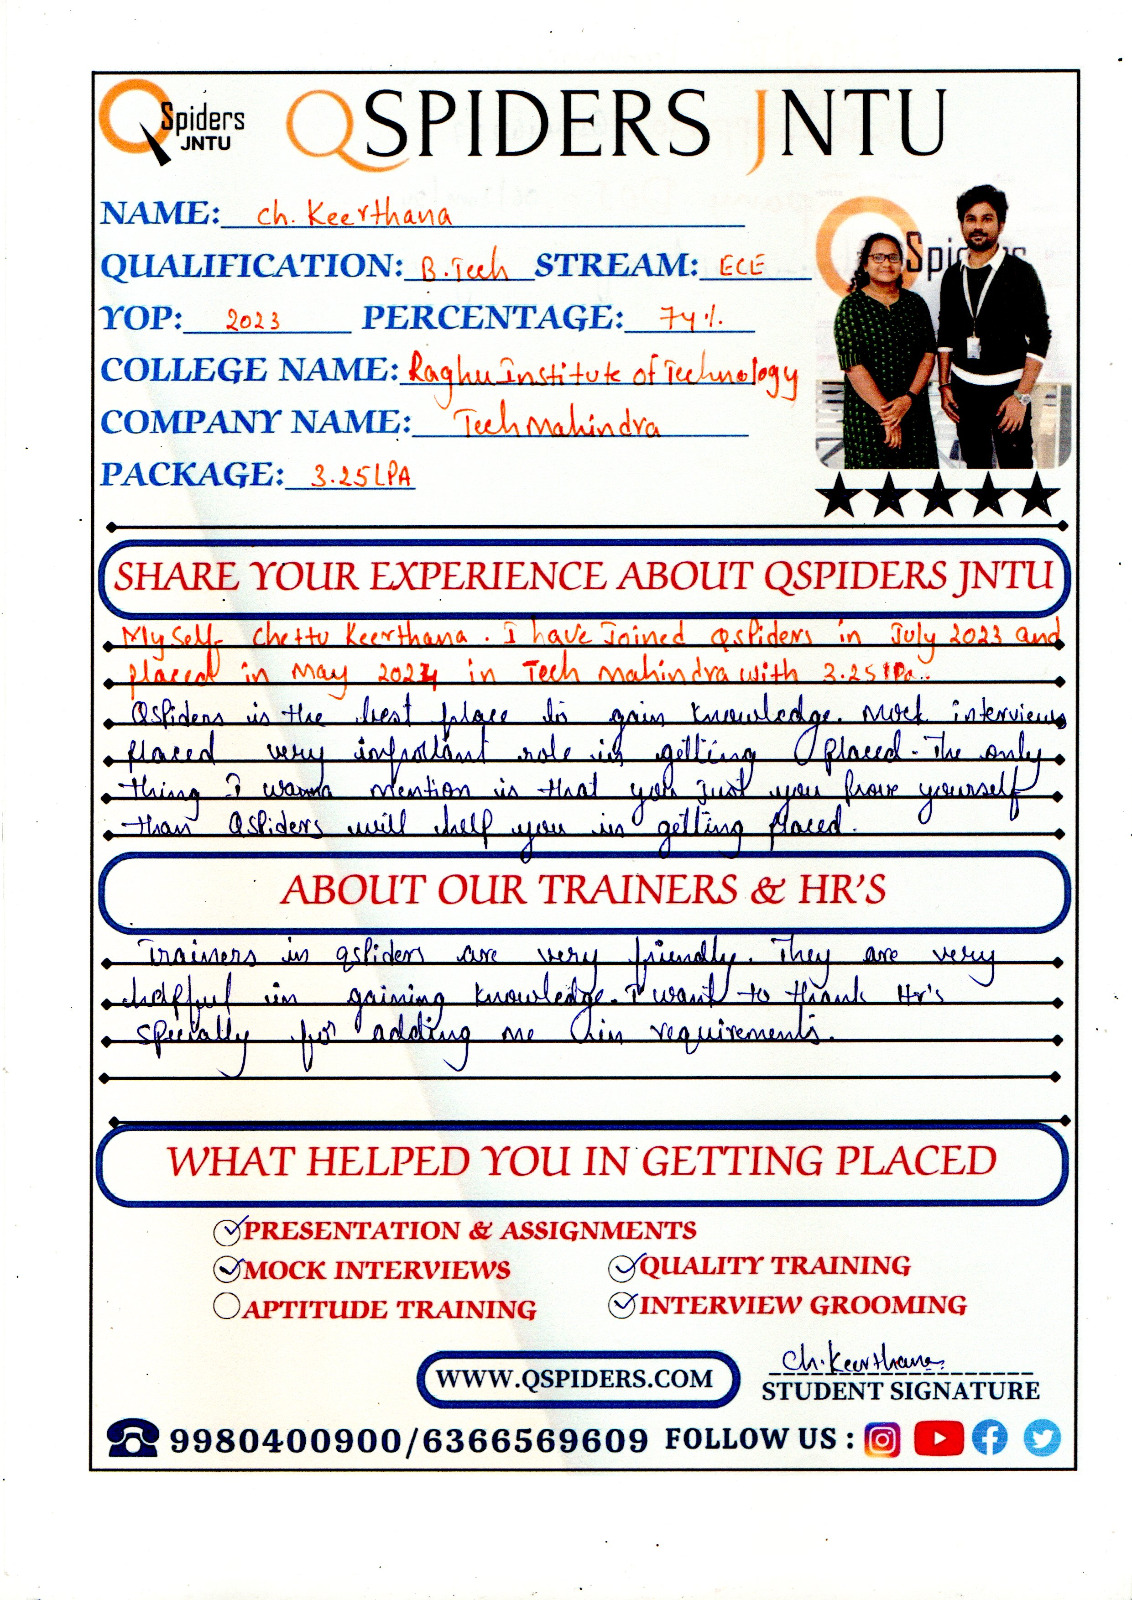 Spiders
JNTU
QSPIDERS JNTU
NAME: Ch. Keerthana
QUALIFICATION: B.Tech STREAM: ECE
YOP: 2023 PERCENTAGE: 74%
COLLEGE NAME: Raghu Institute of Technology
COMPANY NAME: Tech Mahindra
PACKAGE: 3.25 LPA
Spiders
SHARE YOUR EXPERIENCE ABOUT QSPIDERS JNTU
My self Chettu Keerthana. I have Joined Qspiders in July 2023 and
placed in May 2024 in Tech Mahindra with 3.25 lPa..
QSpiders is the best place to gain knowledge. Mock interviews
placed very important role in getting placed. The only
thing I wanna mention is that you just you prove yourself
than QSpiders will help you in getting placed.
ABOUT OUR TRAINERS & HR'S
Trainers in qspiders are very friendly. They are very
helpful in gaining knowledge. I want to thank Hr's
specially for adding me in requirements.
WHAT HELPED YOU IN GETTING PLACED
PRESENTATION & ASSIGNMENTS
MOCK INTERVIEWS QUALITY TRAINING
APTITUDE TRAINING INTERVIEW GROOMING
Ch. Keerthana
WWW.QSPIDERS.COM STUDENT SIGNATURE
9980400900/6366569609 FOLLOW US :